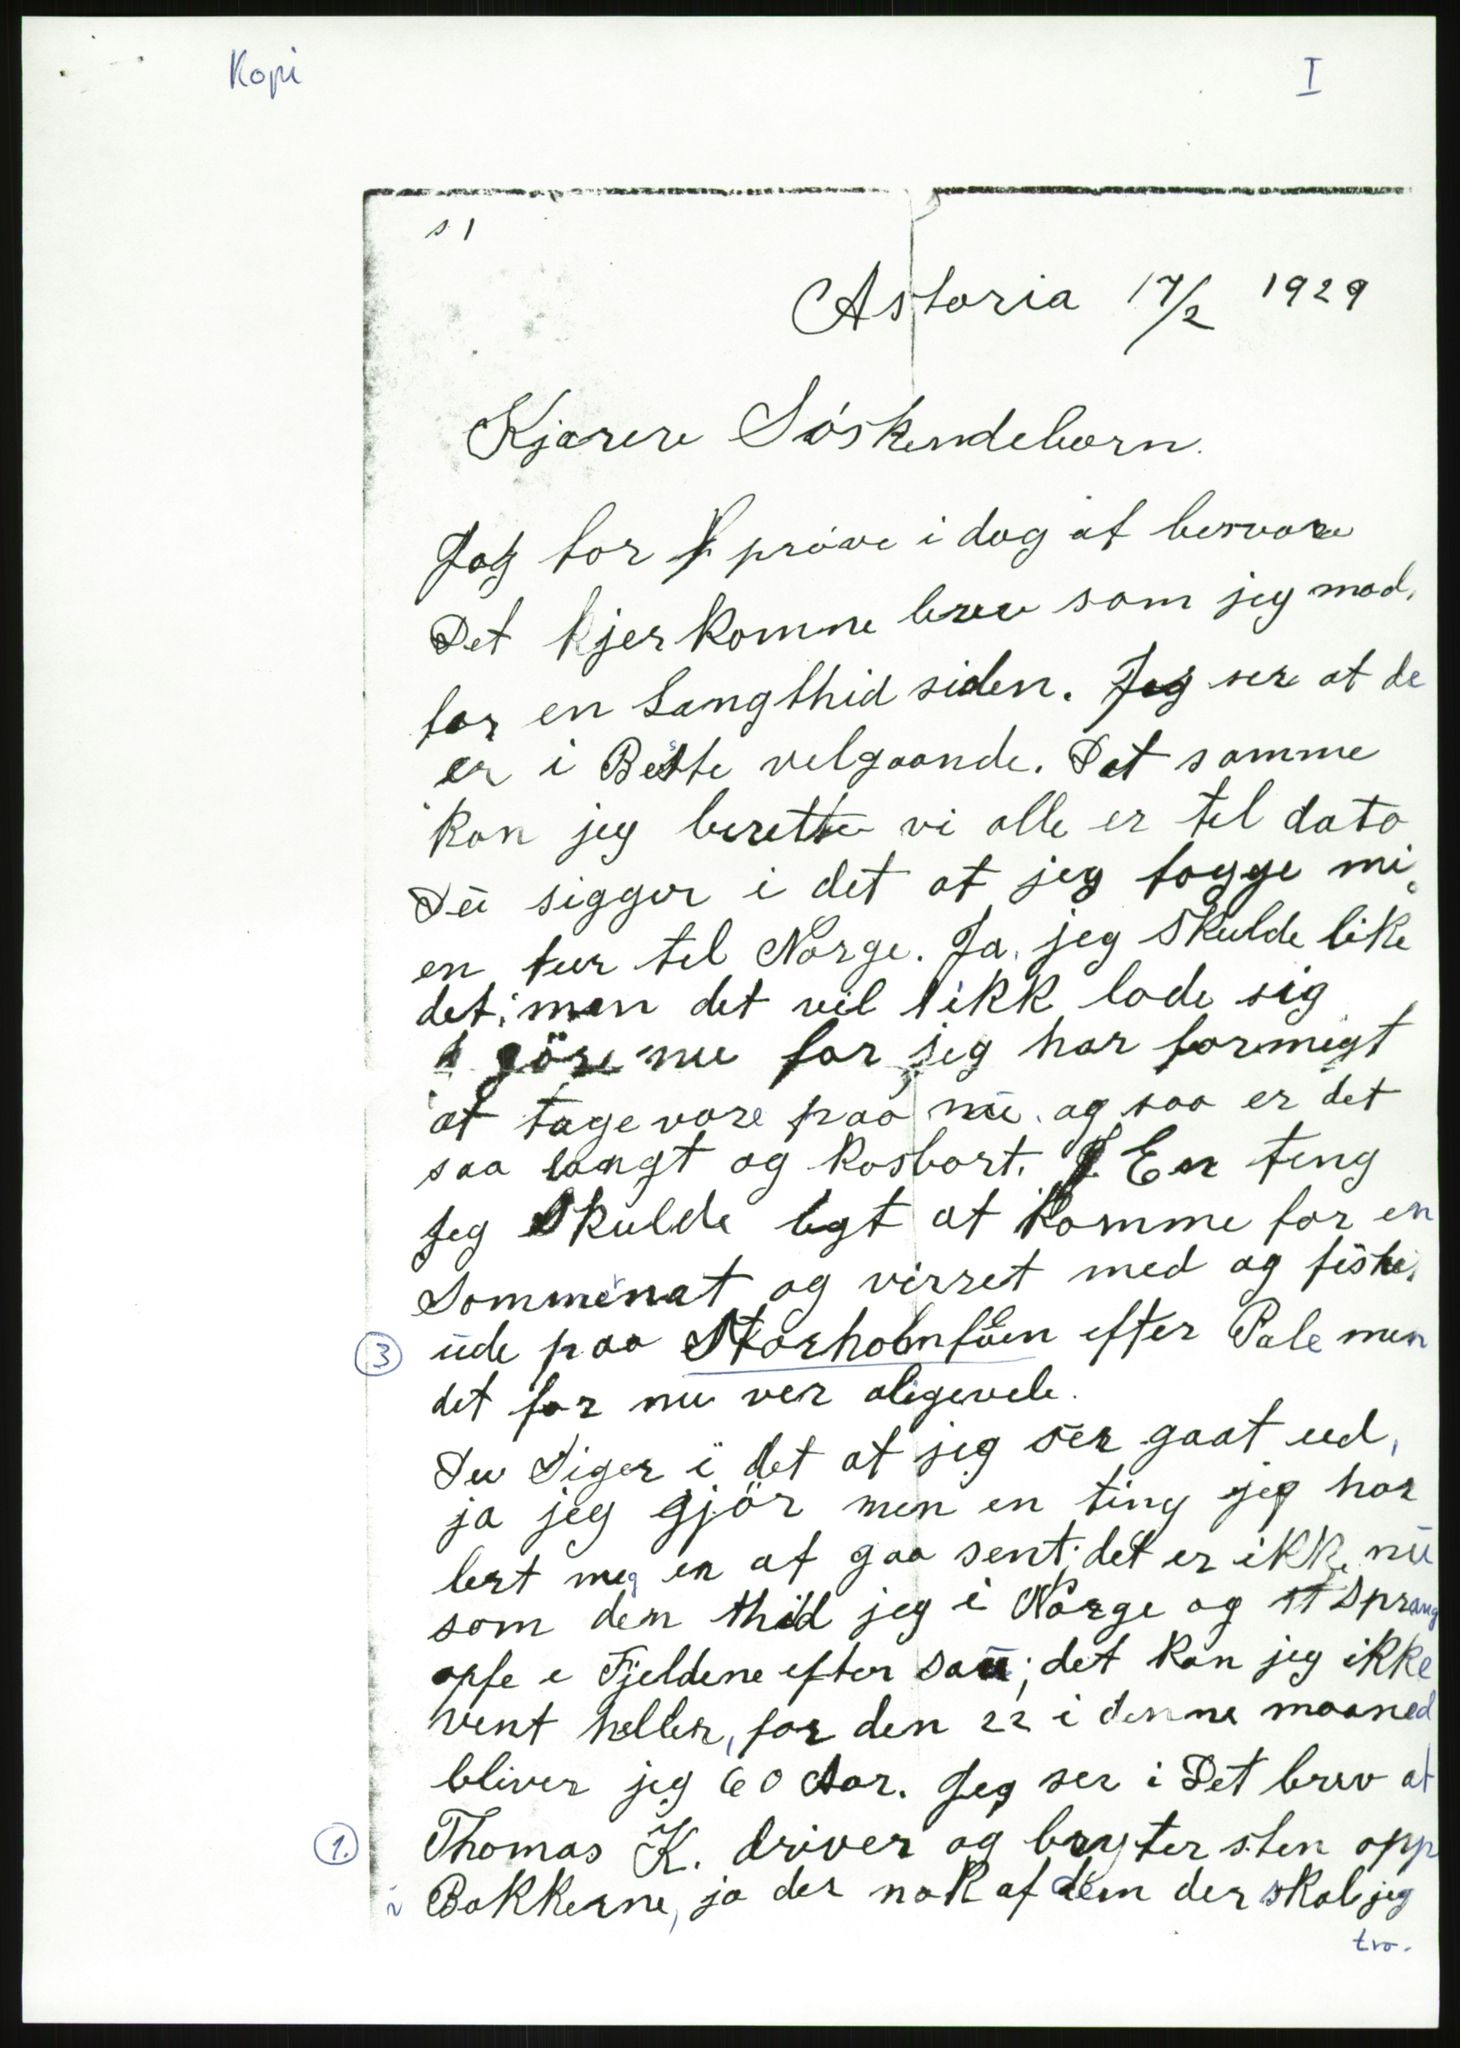 Kopi
I
s 1
Astoria 17/2 1929
Kjærere Söskendebørn.
Jeg for pröve i dag at besvare
Det kjerkomne brev som jeg mod.
for en Langthid siden. Jeg ser at de
er i Beste velgaande. Det samme
kan jeg berette vi alle er til dato
Dü sigger i det at jeg togge mi
en tur til Norge. Ja, jeg Skulde like
det; men det vil ikk lade sig
göre nu for jeg har formigt
at tage vare paa nü. og saa er det
saa langt og kosbart. En ting
jeg Skulde lygt at komme for en
Sommernat og virret med og fiske.
3 üde paa Storholmflüen efter Pale men
det for nu ver aligevele.
Du Siger i det at jeg ser gaat ud,
ja jeg gjör men en ting jeg har
lert meg er at gaa sent; det er ikke nü
som den thid jeg i Norge og sprang
opfe i Fjeldene efter saü; det kan jeg ikke
vent heller, for den 22 i denne maaned
bliver jeg 60 Aar. Jeg ser i Det brev at
1. Thomas K. driver og bryter sten opp
i Bakkerne, ja der nok af dem der skal jeg
tro.